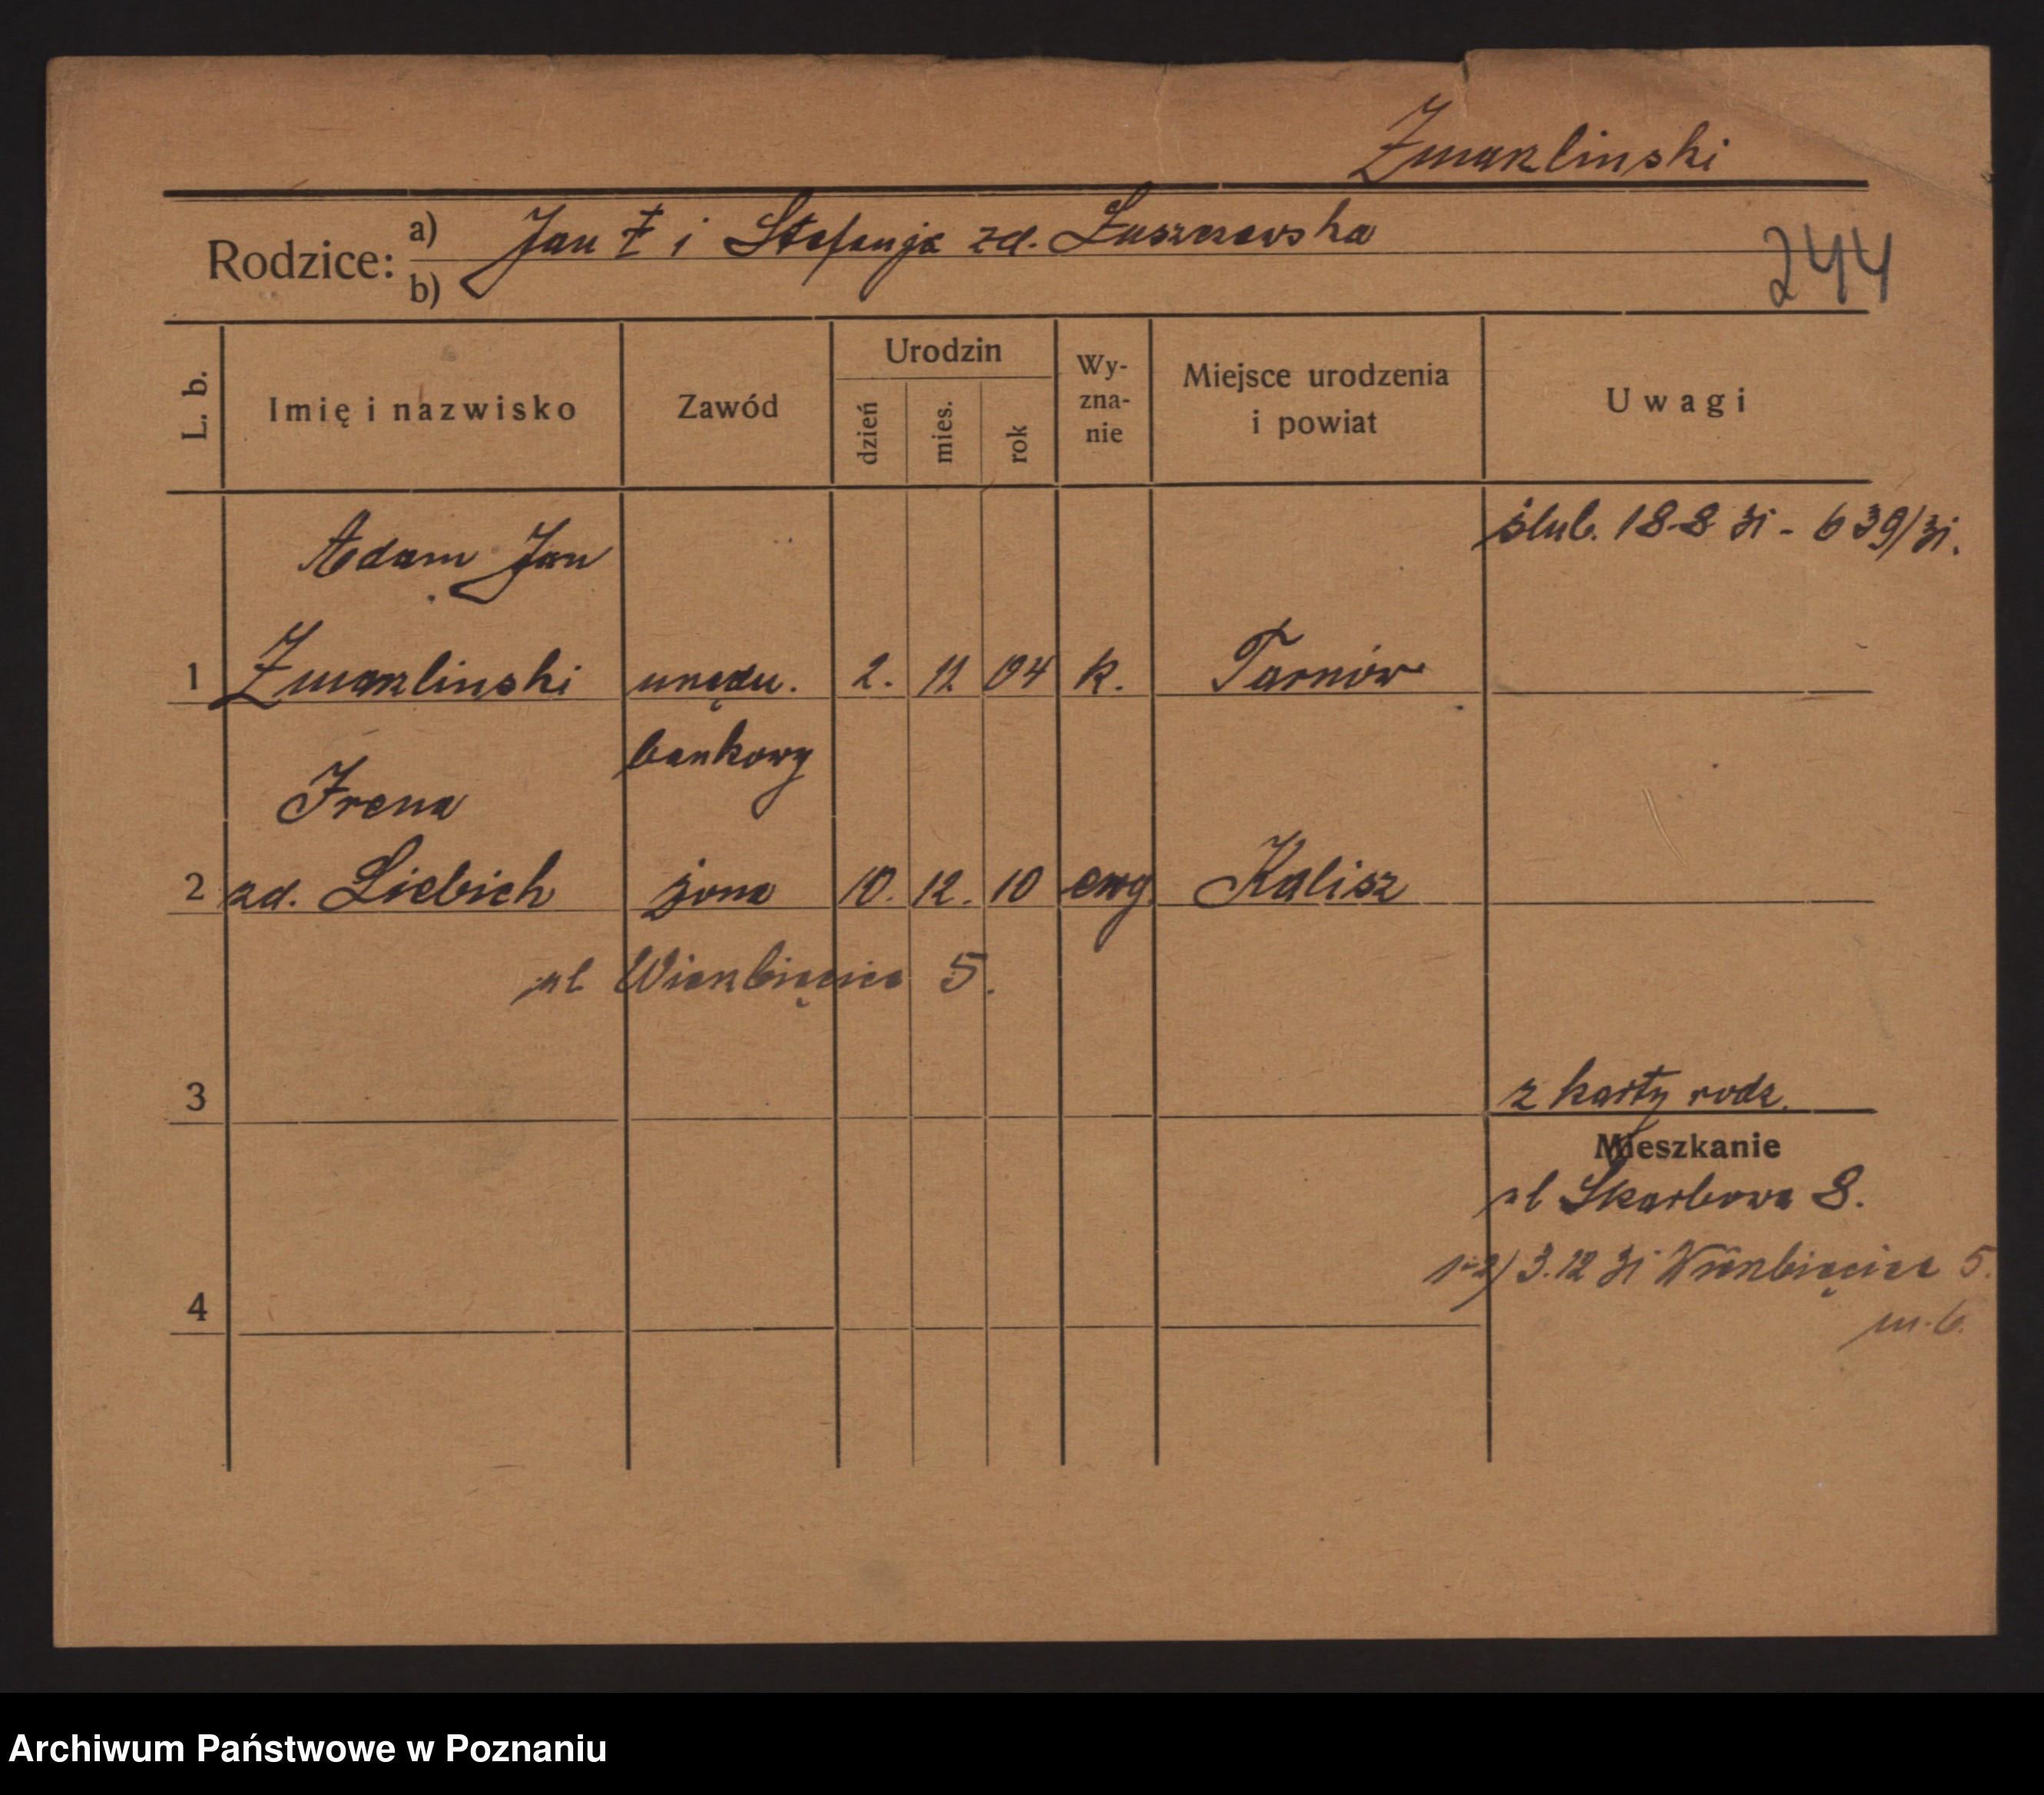 Zmarzlinski
Rodzice:
a) Jan ‡ i Stefanja zd. Łuszczewska
b)
244
L. b.
Imię i nazwisko
Zawód
Urodzin
dzień
mies.
rok
Wy-
zna-
nie
Miejsce urodzenia
i powiat
Uwagi
ślub. 18-8 31 - 639/31.
Adam Jan
1 Zmarzlinski urzędn. 2. 12 04 k. Tarnów
bankowy
Irena
2 zd. Liebich żona 10. 12. 10 ewg. Kalisz
ul Wierzbięcice 5.
3
z karty rodz.
Mieszkanie
ul Skarbowa 8.
1-2) 3.12 31 Wierzbięcice 5.
m. 6.
4
Archiwum Państwowe w Poznaniu